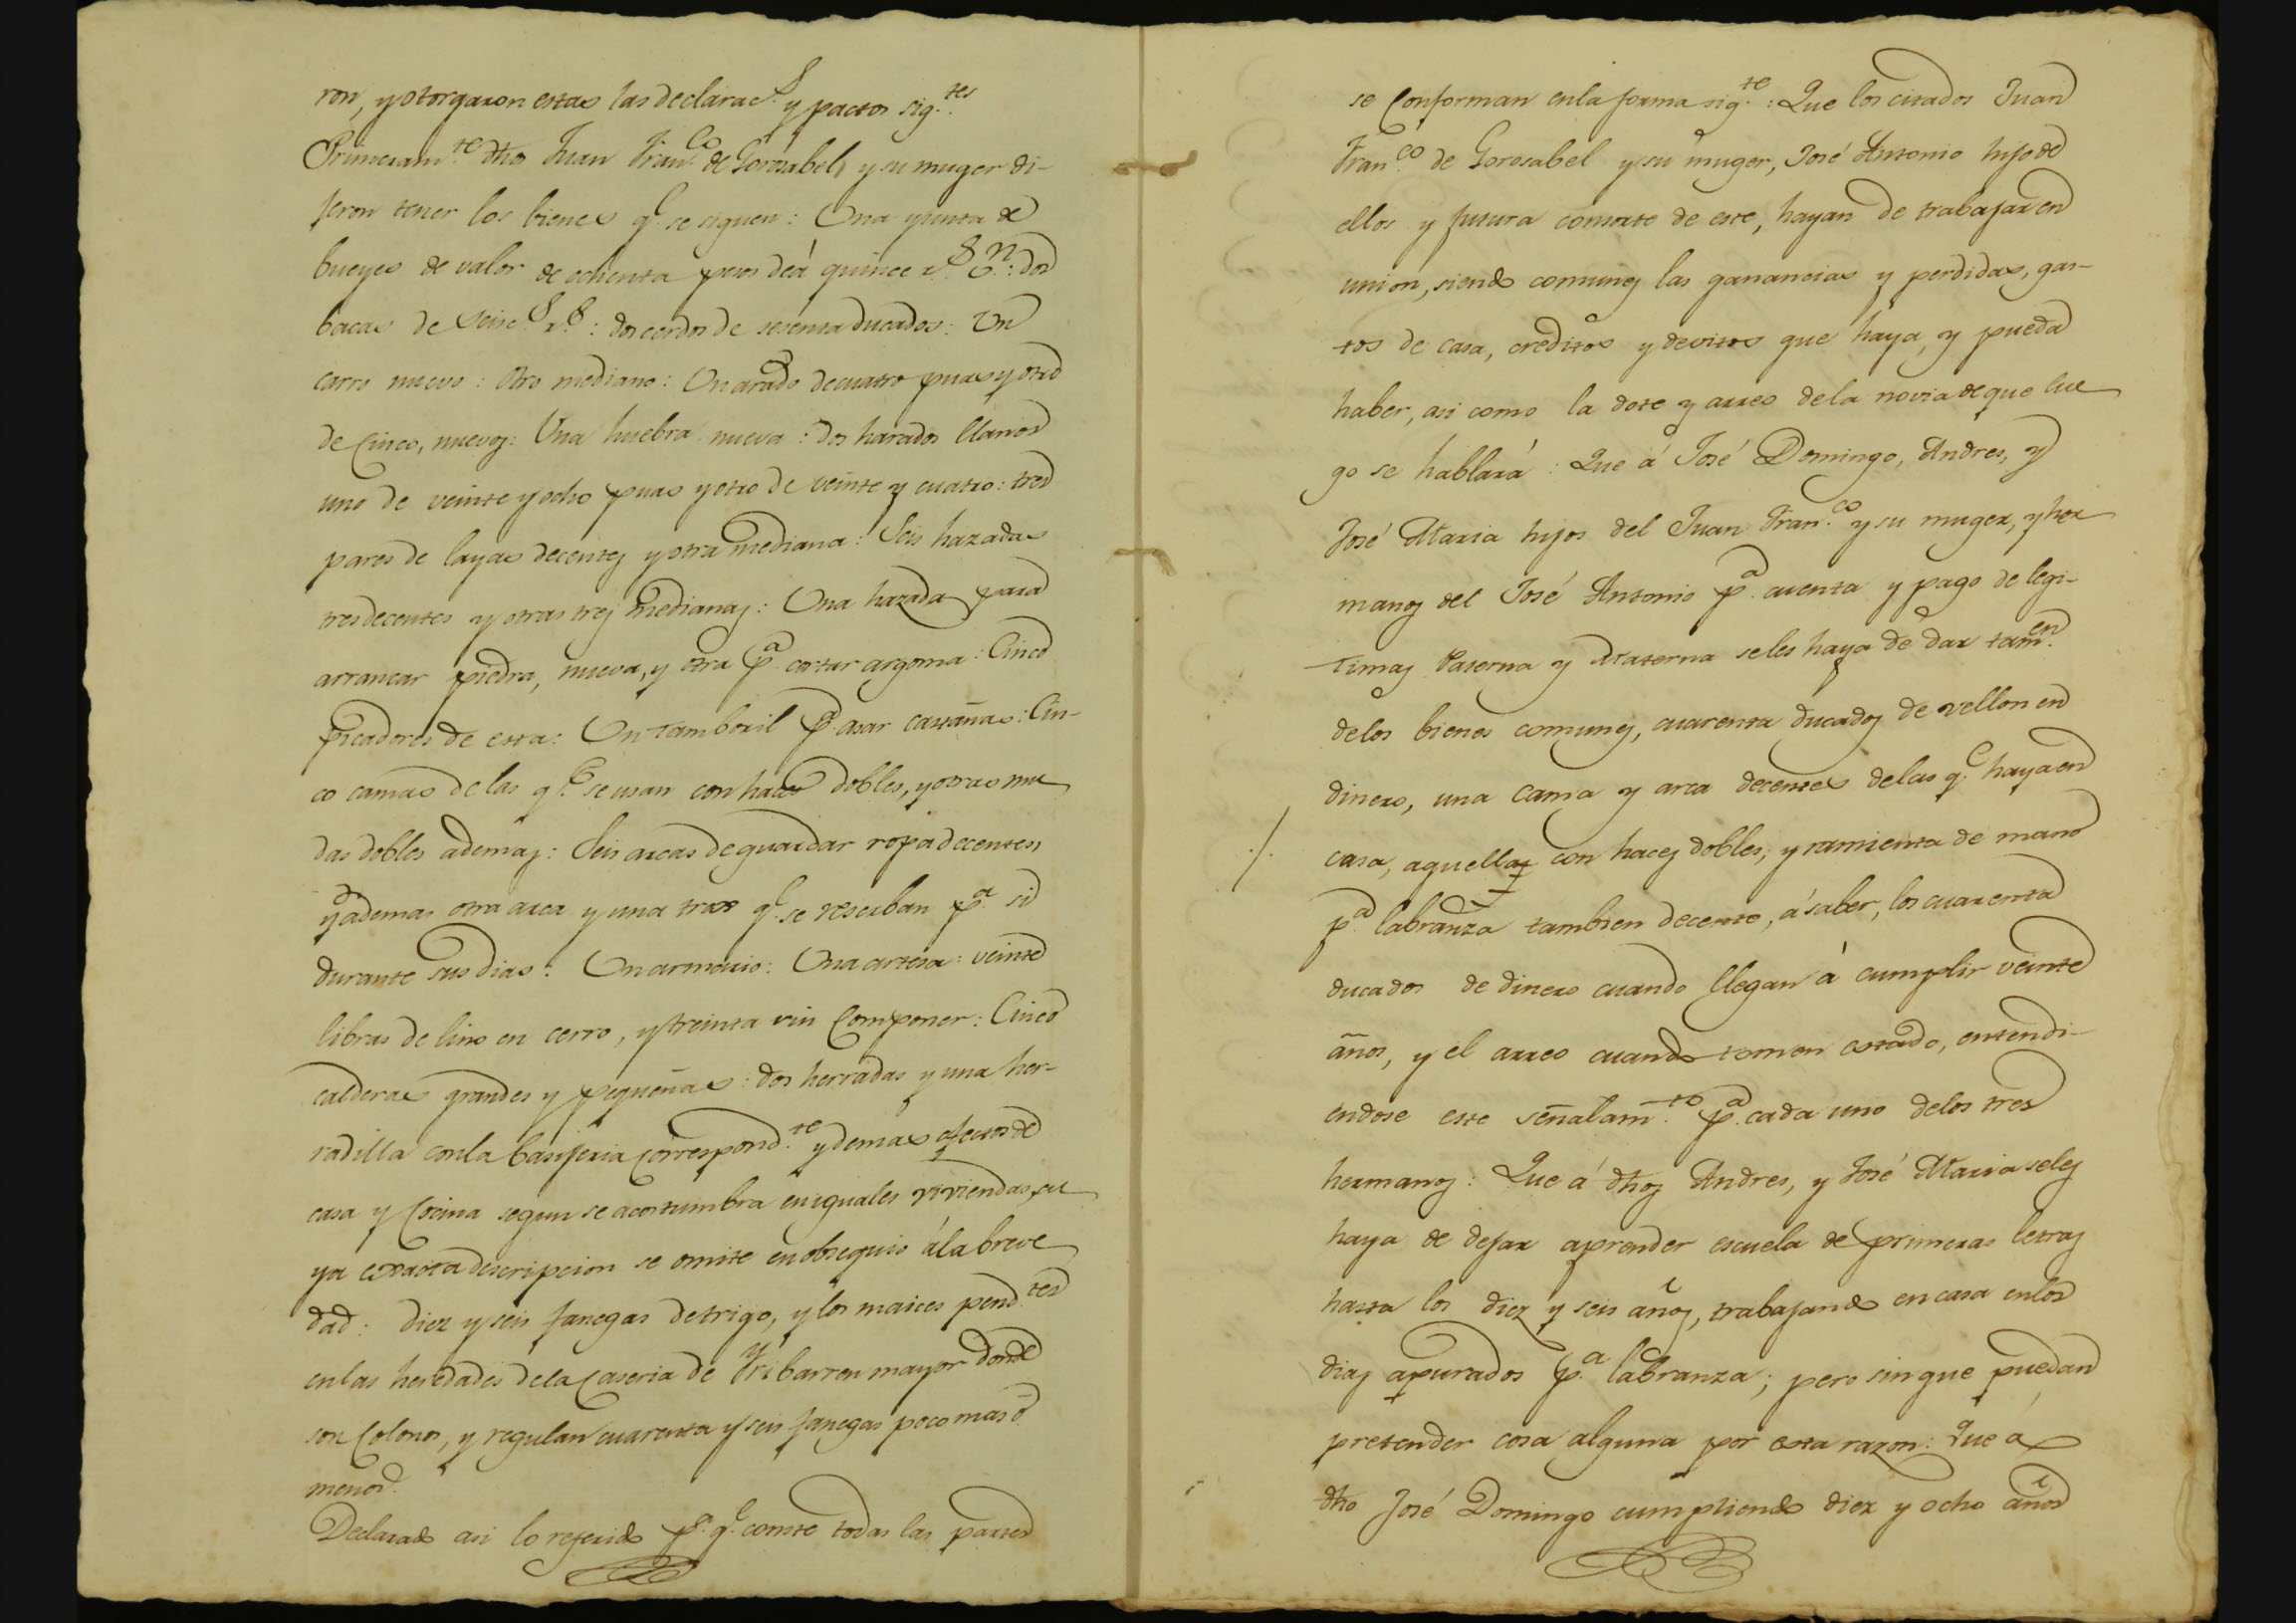 ron, y otorgaron estas las declarac.s y pactos sig.tes
Primeram.te dhos Juan Fran.co de Gorosabel, y su muger di-
jeron tener los bienes q.e se siguen: Una yunta de
bueyes de valor de ochenta pesos de á quince r.s v.n: dos
bacas de seisc.s r.s: dos cerdos de sesenta ducados: Un
carro nuevo: otro mediano: Un arado de cuatro puas y otro
de Cinco, nuevos: Una huebra nueva: dos harados llanos
uno de veinte y ocho puas y otro de veinte y cuatro: tres
pares de layas decentes y otra mediana: Seis hazadas
tres decentes y otras tres medianas: Una hazada para
arrancar piedra, nueva, y otra p.a cortar argoma: Cinco
picadores de esta: Un tamboril p.a asar castañas: Cin-
co camas de las q.e se usan con haces dobles, y otras mu
das dobles ademas: Seis arcas de guardar ropa decentes,
y ademas otra arca y una tras q.e se reserban p.a si
durante sus dias: Un armario: Una artesa: veinte
libras de lino en cerro, y treinta sin Componer: Cinco
calderas grandes y pequeñas: dos herradas y una her-
radilla con la basijeria correspond.te y demas efectos de
casa y Cocina segun se acostumbra en iguales viviendas, cu
ya exacta descripcion se omite en obsequio á la breve
dad: diez y seis fanegas de trigo, y los maices pend.tes
en las heredades de la Caseria de Yribarren mayor donde
son Colonos, y regulan cuarenta y seis fanegas poco mas ó
menos.
Declarado asi lo referido p.a q.e conste todas las partes
se Conforman en la forma sig.te: Que los citados Juan
Fran.co de Gorosabel y su muger, José Antonio hijo de
ellos y futura consorte de este, hayan de trabajar en
union, siendo comunes las ganancias y perdidas, gas-
tos de casa, creditos y devitos que haya, y pueda
haber, asi como la dote y arreo de la novia de que lue
go se hablará: Que á José Domingo, Andres, y
José Maria hijos del Juan Fran.co y su muger, y her
manos del José Antonio p.a cuenta y pago de legi-
timas Paterna y Materna se les haya de dar tam.en
de los bienes comunes, cuarenta ducados de vellon en
dinero, una cama y arca decentes de las q.e haya en
casa, aquellas con haces dobles, y ramienta de mano
p.a labranza tambien decente, á saber, los cuarenta
ducados de dinero cuando llegan á cumplir veinte
años, y el arreo cuando tomen estado, entendi-
endose este señalam.to p.a cada uno de los tres
hermanos: Que á dhos Andres, y José Maria seles
haya de dejar aprender escuela de primeras letras
hasta los diez y seis años, trabajando en casa en los
dias apurados p.a labranza; pero sin que puedan
pretender cosa alguna por esta razon: Que á
dho José Domingo cumpliendo diez y ocho años